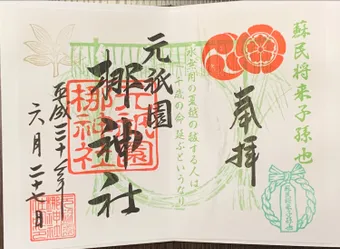 蘇民将来子孫也
奉拝
水無月の夏越の祓する人は
千歳の命延ぶというなり
元祇園
梛神社
元祇園
梛神社
平成三十一年
六月二十七日